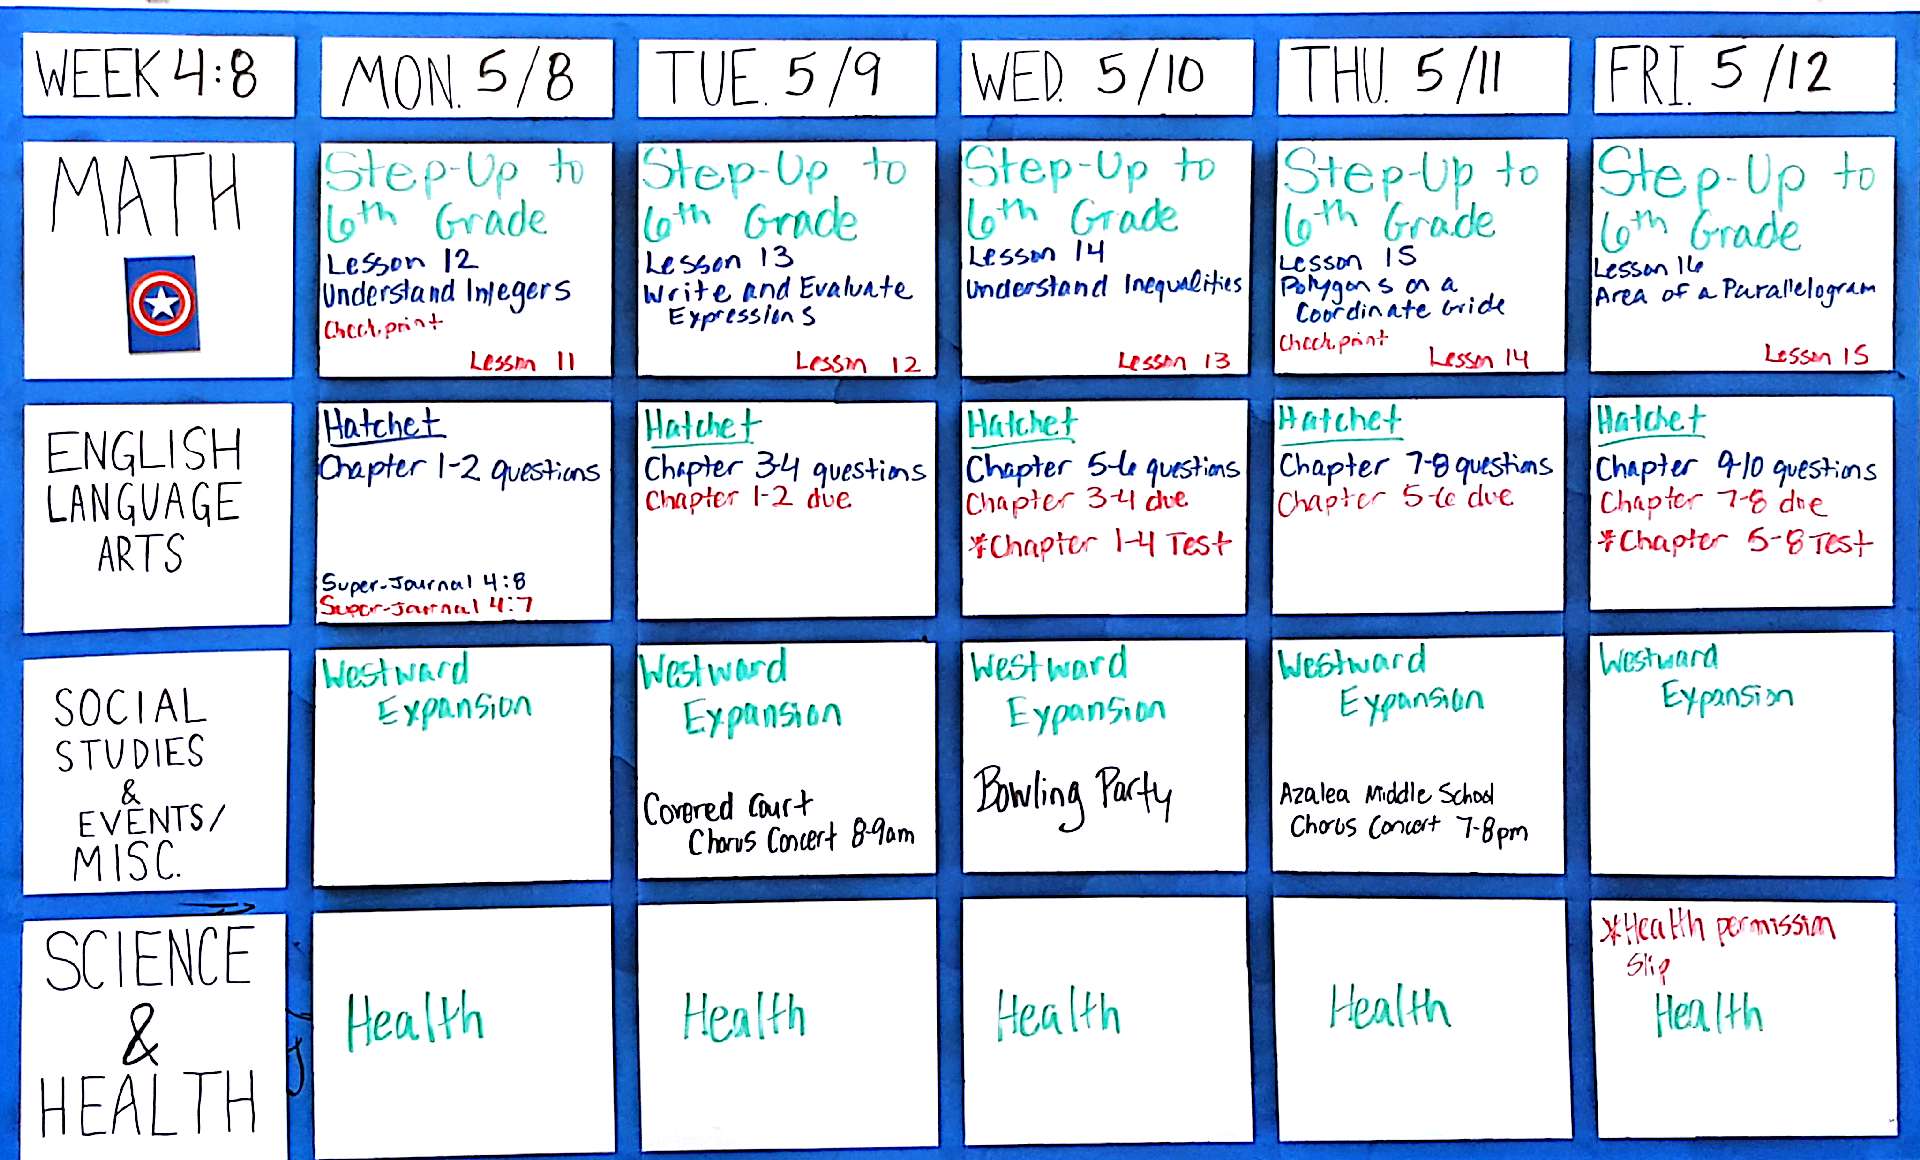 WEEK 4:8
MON. 5/8
TUE. 5/9
WED. 5/10
THU. 5/11
FRI. 5/12
MATH
Step-Up to
6th Grade
Lesson 12
Understand Integers
Checkpoint
Lesson 11
Step-Up to
6th Grade
Lesson 13
Write and Evaluate
Expressions
Lesson 12
Step-Up to
6th Grade
Lesson 14
Understand Inequalities
Lesson 13
Step-Up to
6th Grade
Lesson 15
Polygons on a
Coordinate Gride
Checkpoint
Lesson 14
Step-Up to
6th Grade
Lesson 16
Area of a Parallelogram
Lesson 15
ENGLISH
LANGUAGE
ARTS
Hatchet
Chapter 1-2 questions
Super-Journal 4:8
Super-Journal 4:7
Hatchet
Chapter 3-4 questions
Chapter 1-2 due
Hatchet
Chapter 5-6 questions
Chapter 3-4 due
*Chapter 1-4 Test
Hatchet
Chapter 7-8 questions
Chapter 5-6 due
Hatchet
Chapter 9-10 questions
Chapter 7-8 due
*Chapter 5-8 Test
SOCIAL
STUDIES
&
EVENTS/
MISC.
Westward
Expansion
Westward
Expansion
Covered Court
Chorus Concert 8-9am
Westward
Expansion
Bowling Party
Westward
Expansion
Azalea Middle School
Chorus Concert 7-8pm
Westward
Expansion
SCIENCE
&
HEALTH
Health
Health
Health
Health
*Health permission
Slip
Health